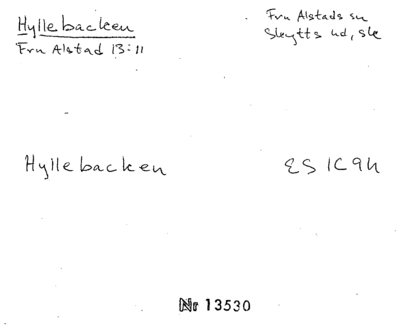 Hyllebacken
Fru Alstad 13:11
Fru Alstads sn
Skytts hd, Ske
Hyllebacken
ES 1C9h
Nr 13530